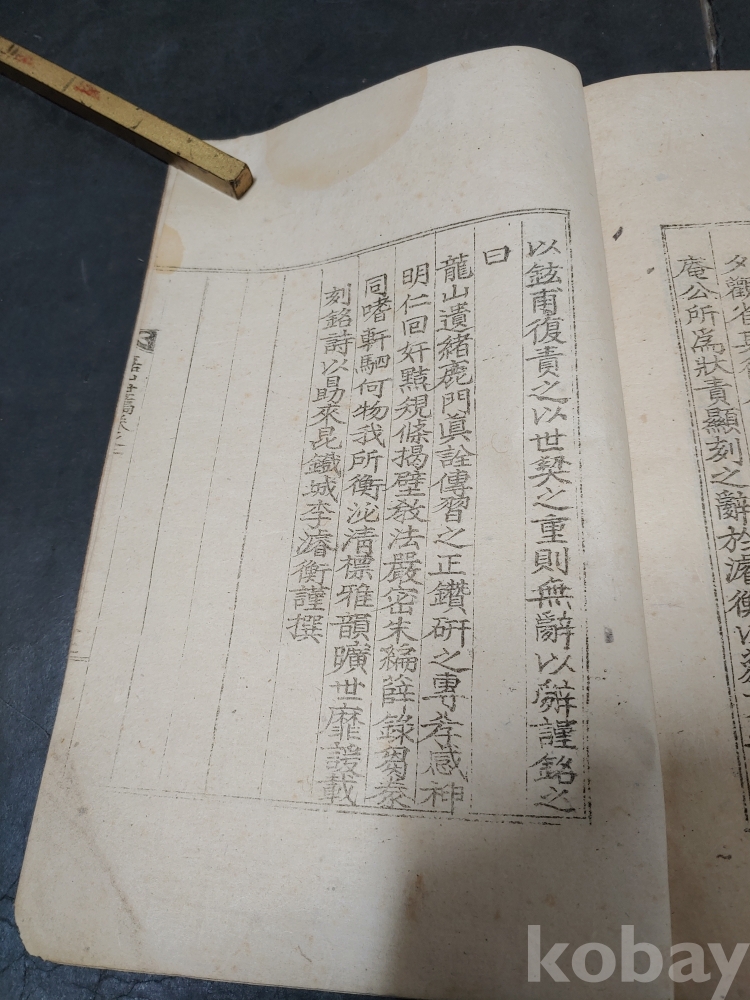 庵公所爲狀責顯刻之辭於濬衡以
以鉉甫復責之以世契之重則無辭以辭謹銘之
曰
龍山遺緖鹿門眞詮傳習之正鑽硏之專孝感神
明仁回奸黠規條揭壁敎法嚴密朱編薛錄芻豢
同嗜軒駟何物我所衡泌淸標雅韻曠世靡諼載
刻銘詩以助來昆鐵城李濬衡謹撰
kobay